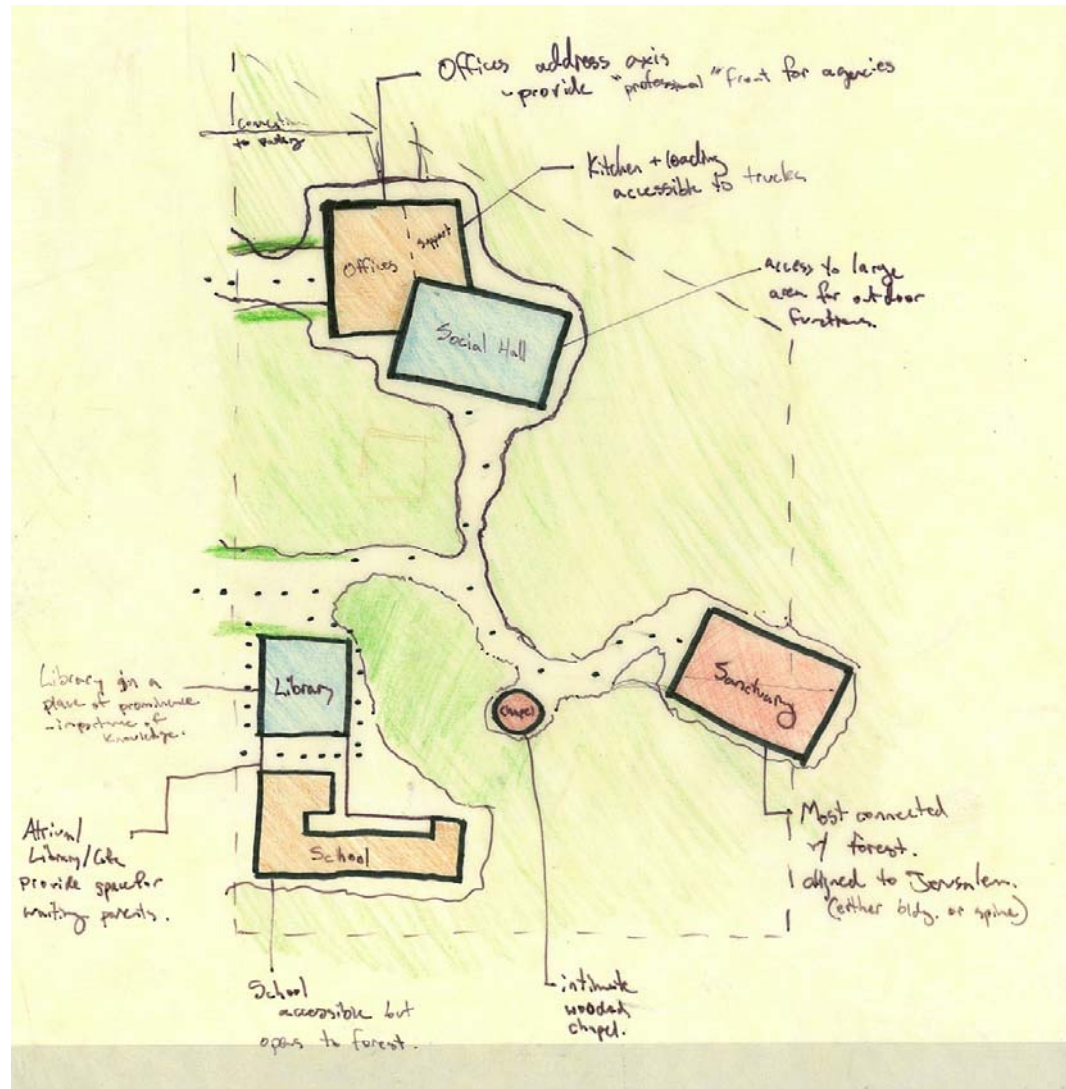 Offices address axis
- provide "professional" front for agencies
connection
to
Kitchen + loading
accessible to trucks
support
Offices
access to large
area for outdoor
functions.
Social Hall
Library in a
place of prominence
- importance of
knowledge.
Library
Chapel
Sanctuary
Atrium/
Library/Cafe
provide space for
waiting parents.
School
Most connected
w/ forest.
aligned to Jerusalem.
(either bldg. or spine)
School
accessible but
opens to forest.
intimate
wooded
chapel.